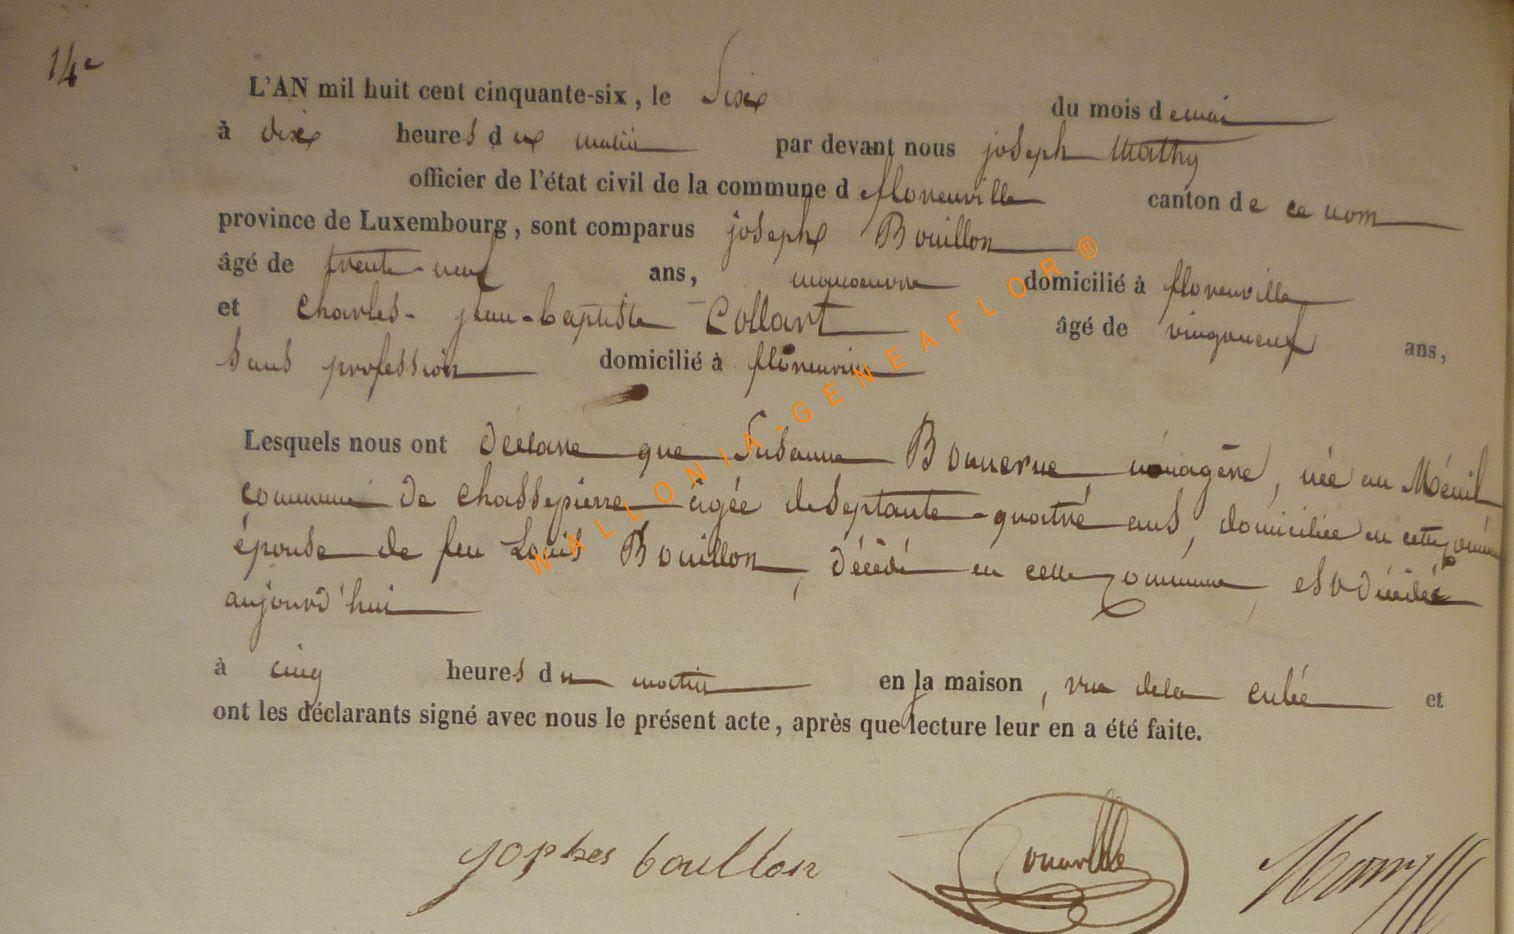 14e
L'AN mil huit cent cinquante-six, le Six du mois de mai
à dix heures du matin par devant nous joseph Mathy
officier de l'état civil de la commune d florenville canton de ce nom
province de Luxembourg, sont comparus joseph Bouillon
âgé de trente-neuf ans, manoeuvre domicilié à florenville
et Charles-jean-baptiste Collart âgé de vingtneuf ans,
sans profession domicilié à florenville
Lesquels nous ont déclare que Susanne ménagère, née au Ménil
commune de Chassepierre âgée de septante-quatre ans, domiciliée en cette commune
épouse de feu Louis Bouillon, décédé en cette commune, est décédée
aujourd'hui
à cinq heures du matin en la maison, rue de la culée et
ont les déclarants signé avec nous le présent acte, après que lecture leur en a été faite.
bouillon
WALLONIA-GENEAFLOR®